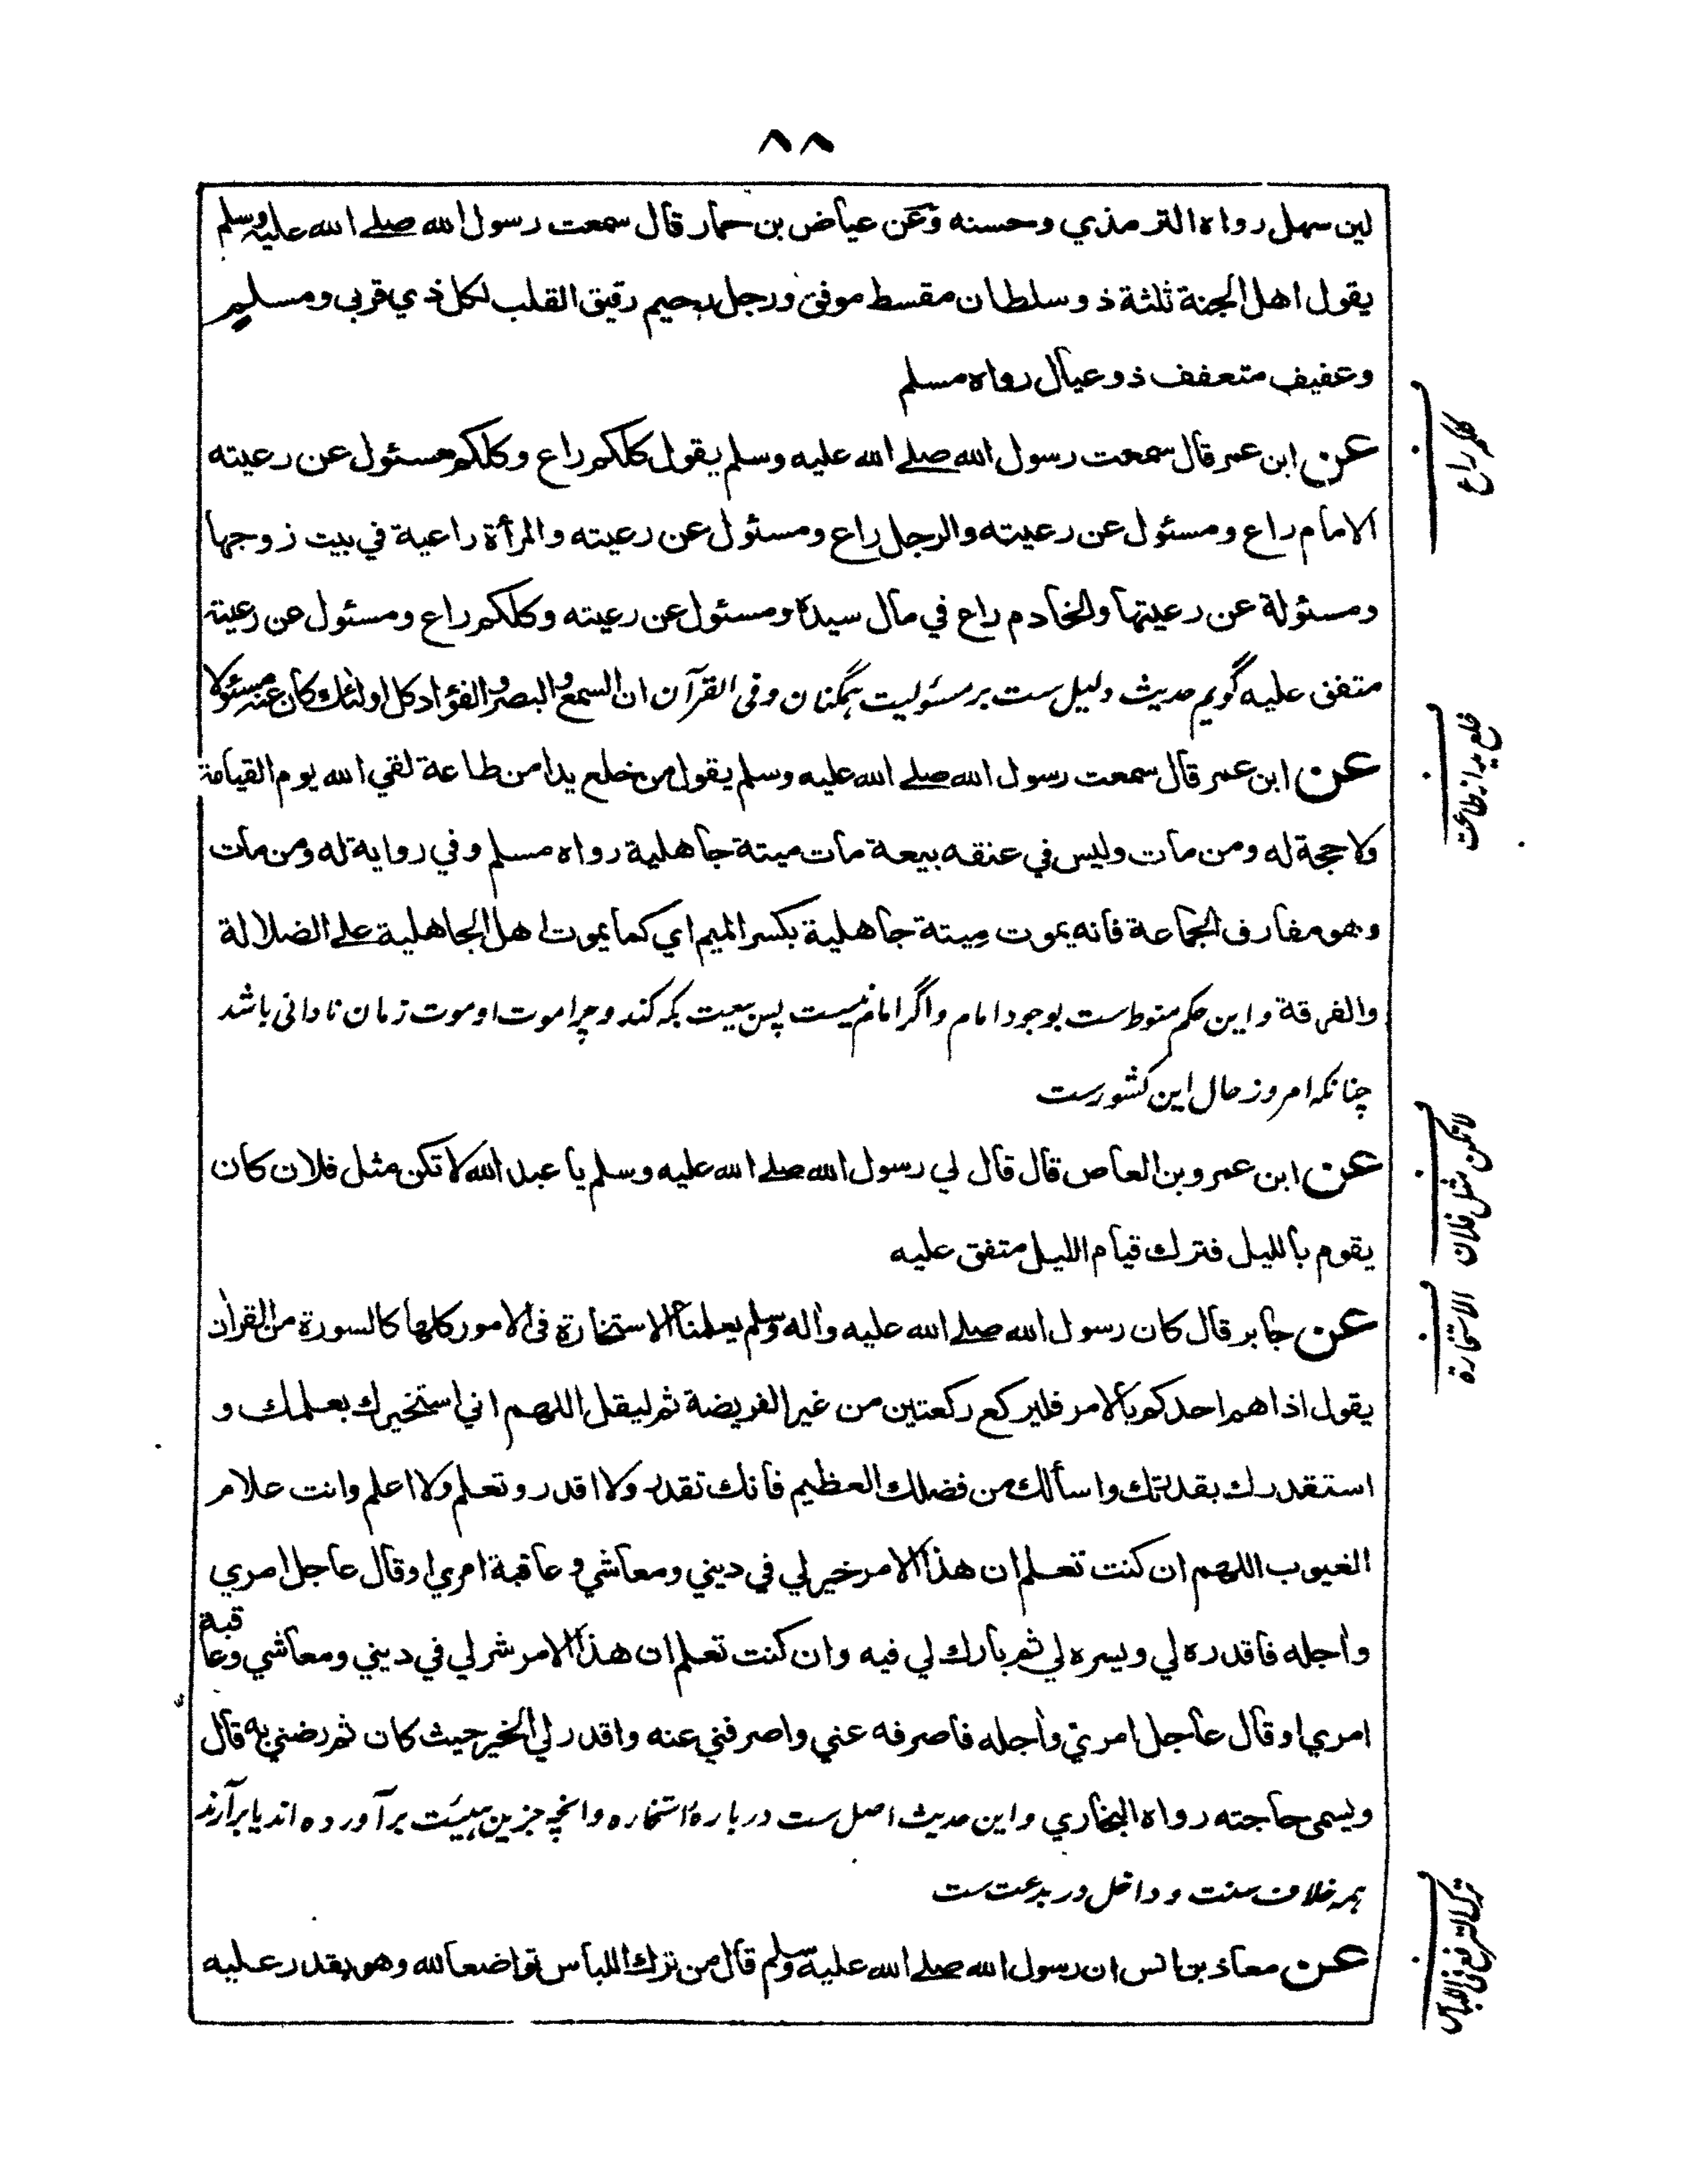 ٨٨
لين سهل رواه الترمذي وحسنه وعن عياض بن حمار قال سمعت رسول الله صلے الله عليه وسلم
يقول اهل الجنة ثلثة ذو سلطان مقسط موفق ورجل رحيم رقيق القلب لكل ذي قربى ومسلم
وعفيف متعفف ذو عيال رواه مسلم
عن ابن عمر قال سمعت رسول الله صلے الله عليه وسلم يقول كلكم راع وكلكم مسئول عن رعيته
الامام راع ومسئول عن رعيته والرجل راع ومسئول عن رعيته والمرأة راعية في بيت زوجها
ومسئولة عن رعيتها والخادم راع في مال سيده ومسئول عن رعيته وكلكم راع ومسئول عن رعيته
متفق عليه گويم حديث دليل ست بر مسئوليت همگنان وفى القرآن ان السمع والبصر والفؤاد كل اولئك كان عنه مسئولا
عن ابن عمر قال سمعت رسول الله صلے الله عليه وسلم يقول من خلع يدا من طاعة لقي الله يوم القيامة
ولا حجة له ومن مات وليس في عنقه بيعة مات ميتة جاهلية رواه مسلم وفي رواية له ومن مات
وهو مفارق الجماعة فانه يموت مِيتة جاهلية بكسر الميم اي كما يموت اهل الجاهلية علے الضلالة
والفرقة واين حكم منوط ست بوجود امام واگر امام نيست پس بيعت بكه كند وچرا موت او موت زمان نادانى باشد
چنانكه امروز حال اين كشور ست
عن ابن عمرو بن العاص قال قال لي رسول الله صلے الله عليه وسلم يا عبد الله لا تكن مثل فلان كان
يقوم بالليل فترك قيام الليل متفق عليه
عن جابر قال كان رسول الله صلے الله عليه واله وسلم يعلمنا الاستخارة فى الامور كلها كالسورة من القران
يقول اذا هم احدكم بالامر فليركع ركعتين من غير الفريضة ثم ليقل اللهم اني استخيرك بعلمك و
استقدرك بقدرتك واسألك من فضلك العظيم فانك تقدر ولا اقدر وتعلم ولا اعلم وانت علام
الغيوب اللهم ان كنت تعلم ان هذا الامر خير لي في ديني ومعاشي وعاقبة امري اوقال عاجل امري
واجله فاقدره لي ويسره لي ثم بارك لي فيه وان كنت تعلم ان هذا الامر شر لي في ديني ومعاشي وعاقبة
امري اوقال عاجل امري واجله فاصرفه عني واصرفني عنه واقدر لي الخير حيث كان ثم رضني به قال
ويسمى حاجته رواه البخاري واين حديث اصل ست دربارهٔ استخاره وانچه جزين هيئت برآورده اند يا برآرند
همه خلاف سنت وداخل در بدعت ست
عن معاذ بن انس ان رسول الله صلے الله عليه وسلم قال من ترك اللباس تواضعا لله وهو يقدر عليه
كلكم راع
خلع يد از طاعت
لا تكن مثل فلان
الاستخارة
ترك الترفع فى اللباس